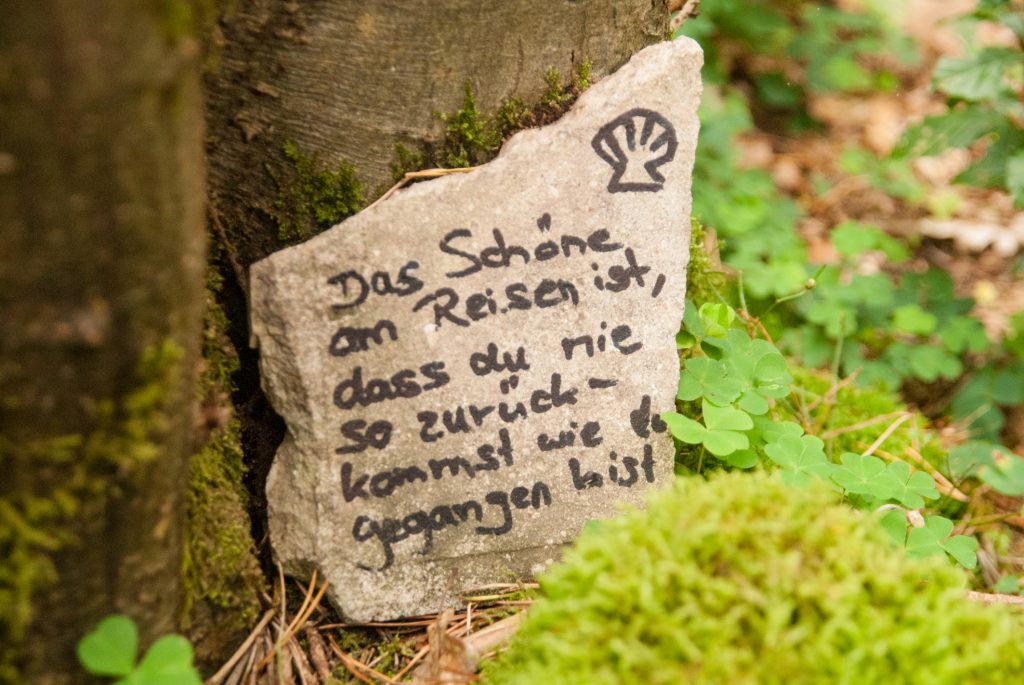 Das Schöne
am Reisen ist,
dass du nie
so zurück-
kommst wie du
gegangen bist